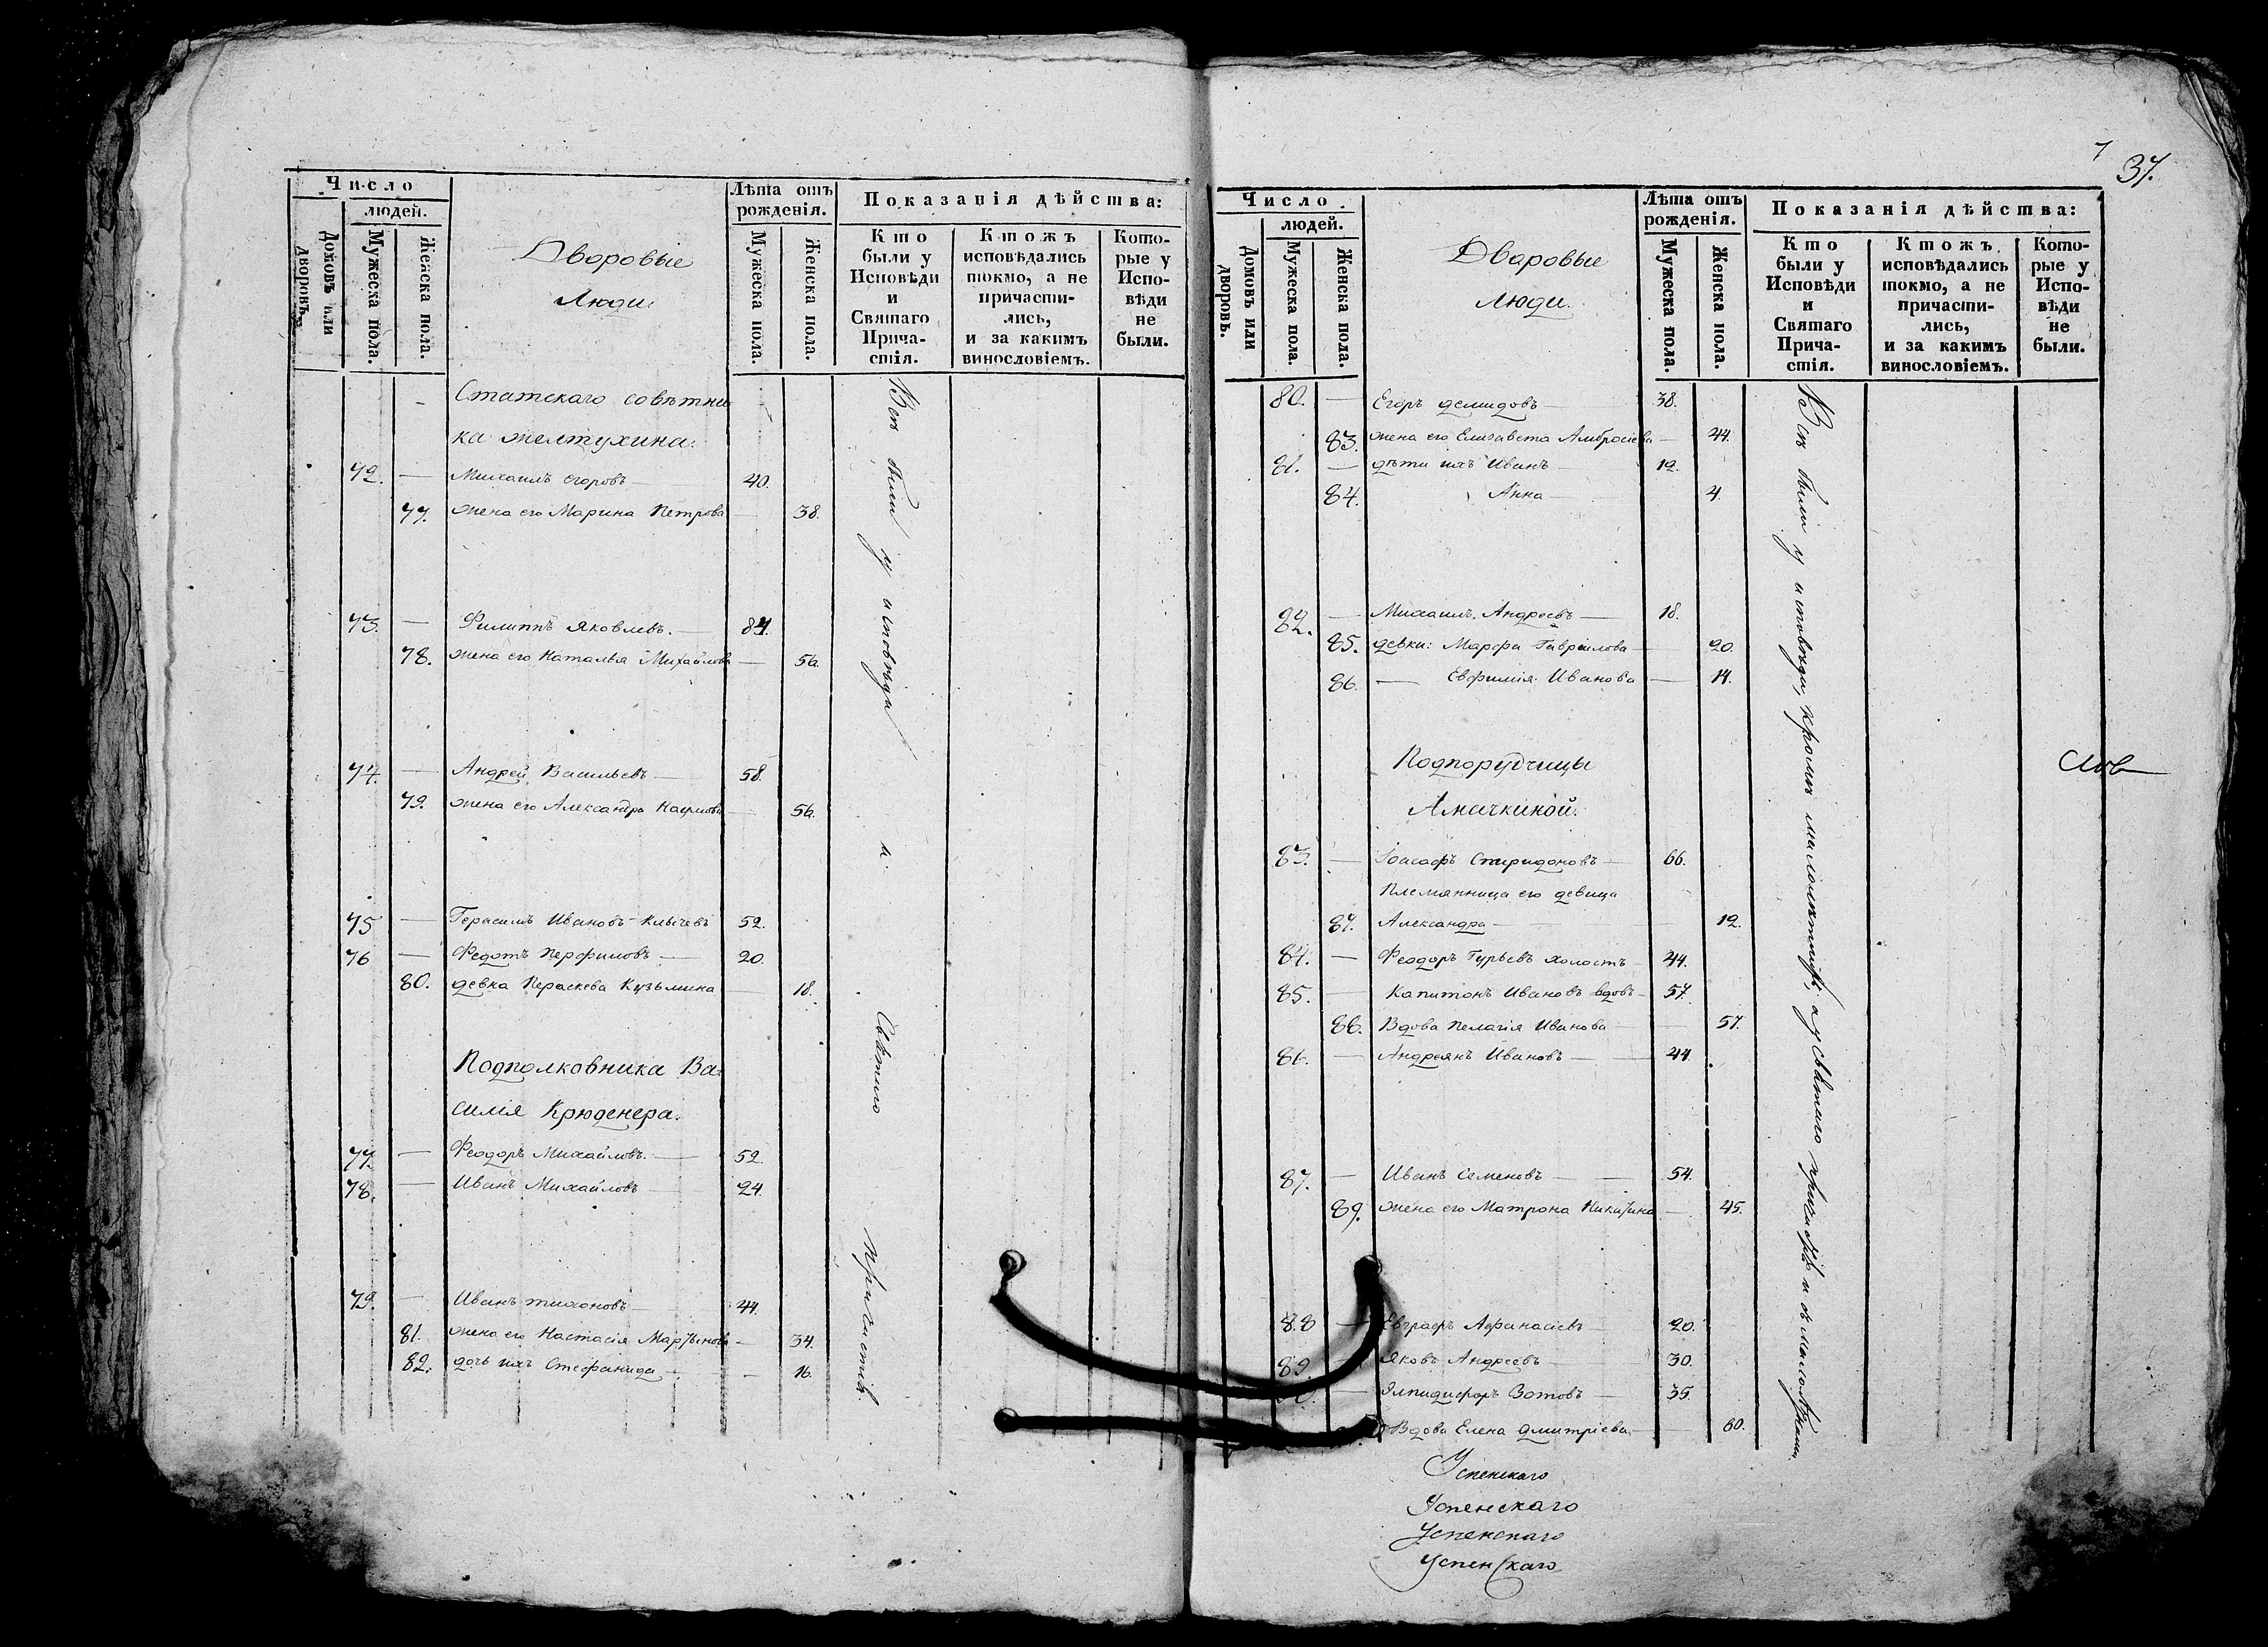 Число
людей.
Домовъ или дворовъ.
Мужеска пола.
Женска пола.
Дворовые
Люди.
Лѣта отъ
рожденія.
Мужеска пола.
Женска пола.
Показанія дѣйства:
Кто
были у
Исповѣди
и
Святаго
Прича-
стія.
Ктожъ
исповѣдались
токмо, а не
причасти-
лись,
и за какимъ
винословіемъ.
Кото-
рые у
Испо-
вѣди
не
были.
Статскаго совѣтни
ка Желтухина.
72. — Михаилъ Егоровъ — 40.
77. жена его Марина Петрова — 38.
73. — Филиппъ Яковлевъ. — 84.
78. жена его Наталья Михайлова — 56
74. — Андрей Васильевъ — 58.
79. жена его Александра — 56.
75 — Герасимъ Ивановъ Клычевъ 52.
76 — Федотъ Перфиловъ — 20.
80. девка Параскева Кузьмина — 18.
Подполковника Ва-
силія Крюденера.
77. — Феодоръ Михайловъ. — 52.
78. — Иванъ Михайловъ — 24.
79. — Иванъ Тихоновъ — 44.
81. жена его Настасія Мартынова — 34.
82. дочь ихъ Стефанида — 16.
Всѣ были у исповѣди и Святаго Причастія.
7
37.
Число
людей.
Домовъ или дворовъ.
Мужеска пола.
Женска пола.
Дворовые
Люди.
Лѣта отъ
рожденія.
Мужеска пола.
Женска пола.
Показанія дѣйства:
Кто
были у
Исповѣди
и
Святаго
Прича-
стія.
Ктожъ
исповѣдались
токмо, а не
причасти-
лись,
и за какимъ
винословіемъ.
Кото-
рые у
Испо-
вѣди
не
были.
80. — Егоръ Демидовъ — 38.
83. жена его Елисавета Амбросіева — 44.
81. — дѣти ихъ Иванъ — 12.
84. Анна — 4.
82. — Михаилъ Андреевъ — 18.
85. девки: Марфа Гавриилова — 20.
86. — Евфимія Иванова — 14.
Подпоручицы
Аничкиной.
83. — Іоасафъ Спиридоновъ — 66.
Племянница его девица
87. Александра — 12.
84. — Феодоръ Гурьевъ холостъ — 44.
85. — Капитонъ Ивановъ вдовъ — 57.
88. Вдова Пелагія Иванова — 57.
86. — Андреянъ Ивановъ — 44.
87. — Иванъ Семеновъ — 54.
89. жена его Матрона Никитина — 45.
88 — Евграфъ Афанасіевъ — 20.
89. — Яковъ Андреевъ — 30.
— Элпидифоръ Зотовъ — 35.
Вдова Елена Дмитріева. — 60.
Всѣ были у исповѣди, кромѣ малолѣтнихъ, а у Святаго причастія и съ малолѣтными.
Успенскаго
Успенскаго
Успенскаго
Успенскаго